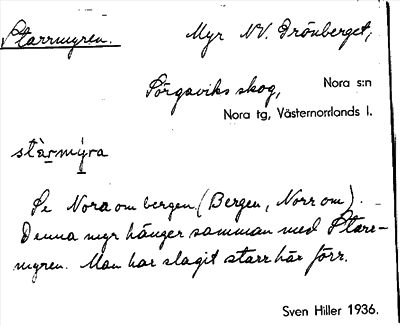 Starrmyren. Myr NV. Grönberget,
Sörgaviks skog, Nora s:n
Nora tg, Västernorrlands l.
stàrmỳra
Se Nora om bergen (Bergen, Norr om).
Denna myr hänger samman med Starr-
myren. Man har slagit starr här förr.
Sven Hiller 1936.